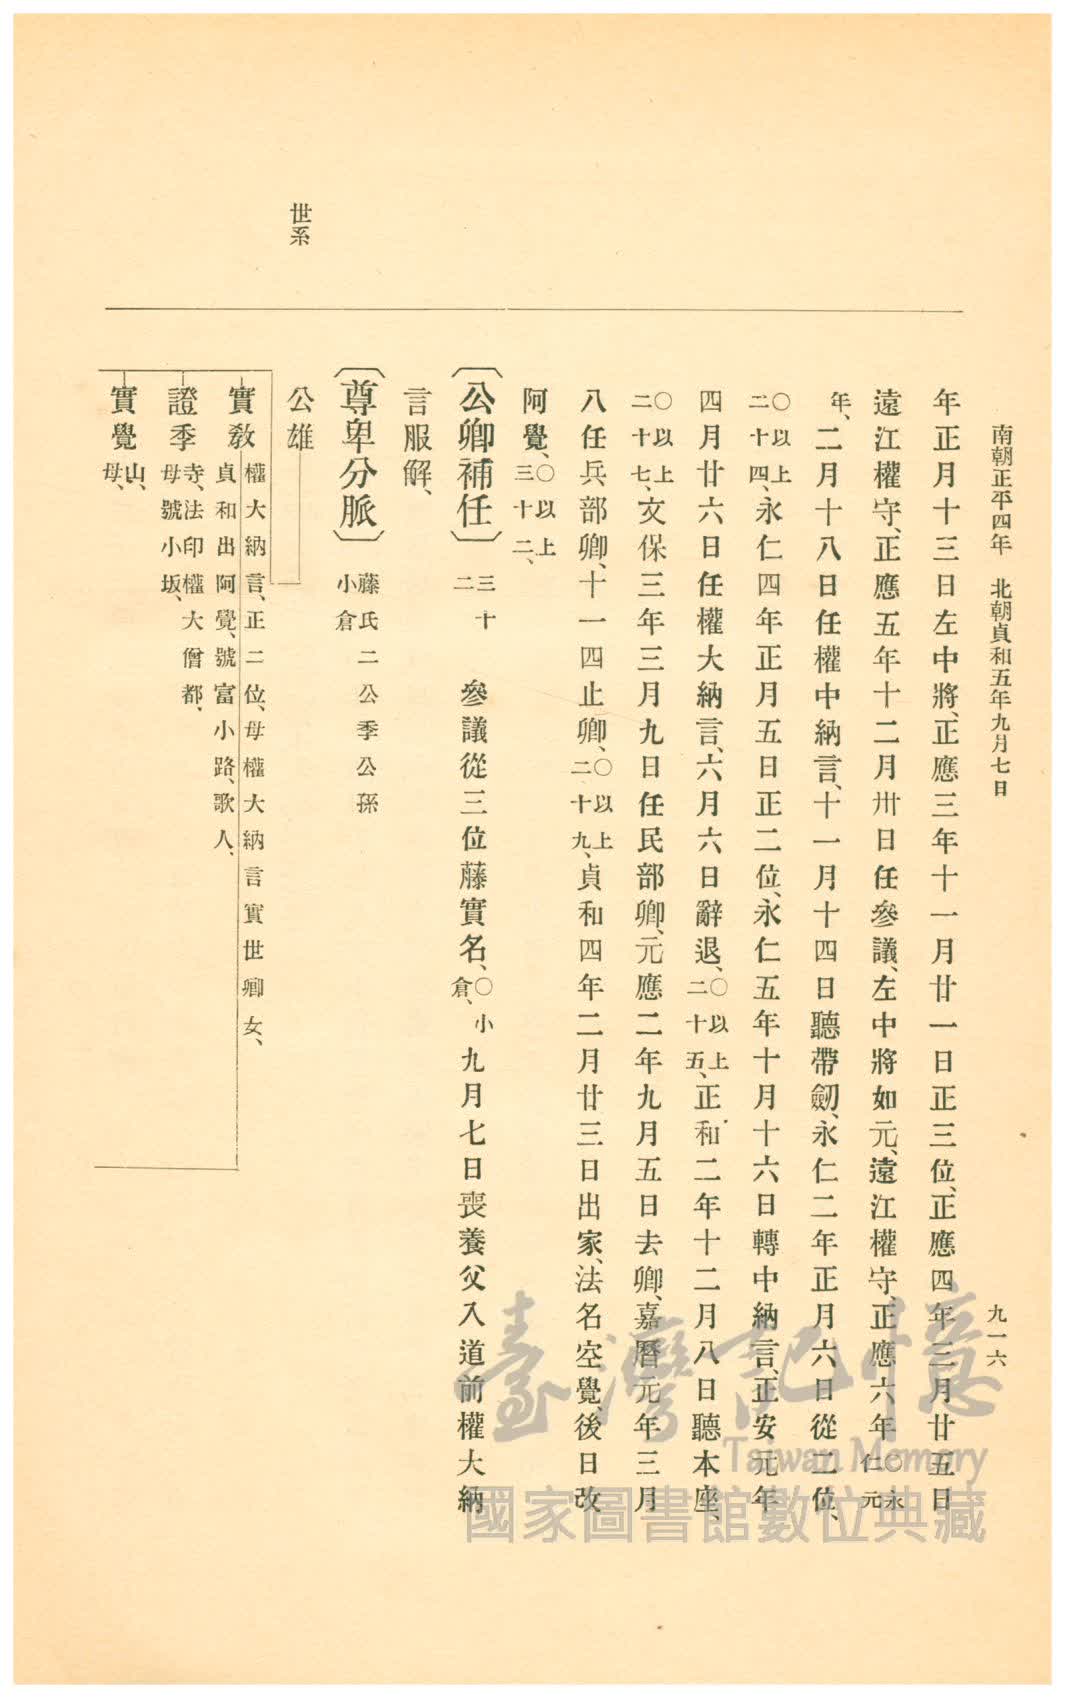 南朝正平四年　北朝貞和五年九月七日
九一六
世系
年正月十三日左中將、正應三年十一月廿一日正三位、正應四年三月廿五日
遠江權守、正應五年十二月卅日任參議、左中將如元、遠江權守、正應六年〇永仁元
年、二月十八日任權中納言、十一月十四日聽帶劒、永仁二年正月六日從二位、
〇以上二十四、永仁四年正月五日正二位、永仁五年十月十六日轉中納言、正安元年
四月廿六日任權大納言、六月六日辭退、〇以上二十五、正和二年十二月八日聽本座、
〇以上二十七、文保三年三月九日任民部卿、元應二年九月五日去卿、嘉曆元年三月
八任兵部卿、十一四止卿、〇以上二十九、貞和四年二月廿三日出家、法名空覺、後日改
阿覺、〇以上三十二、
〔公卿補任〕三十二　參議從三位藤實名、〇小倉、九月七日喪養父入道前權大納
言服解、
〔尊卑分脈〕藤氏二公季公孫小倉
公雄
實教　權大納言、正二位、母權大納言實世卿女、
貞和出阿覺、號富小路、歌人、
證季　寺、法印權大僧都、
母號小坂、
實覺　山、
母、
臺灣記憶
Taiwan Memory
國家圖書館數位典藏